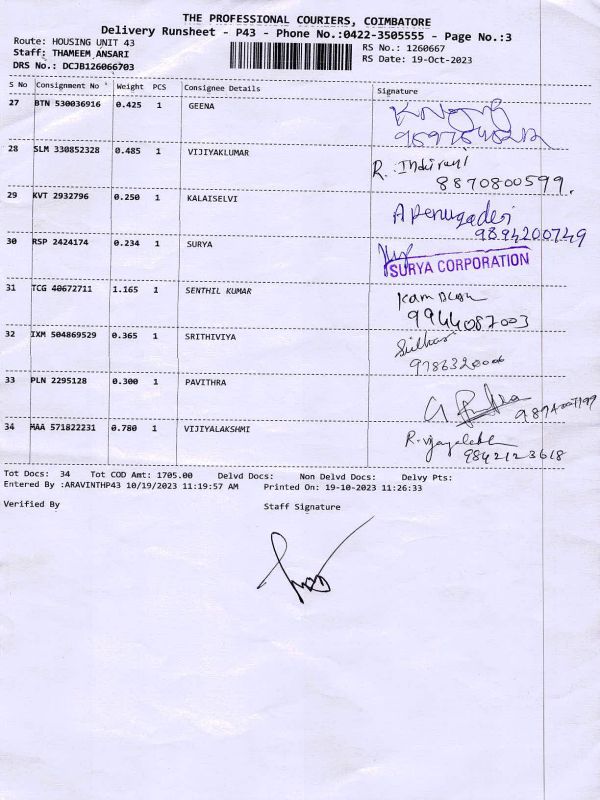 THE PROFESSIONAL COURIERS, COIMBATORE
Delivery Runsheet - P43 - Phone No.:0422-3505555 - Page No.:3
Route: HOUSING UNIT 43
RS No.: 1260667
Staff: THAMEEM ANSARI
RS Date: 19-Oct-2023
DRS No.: DCJB126066703
S No Consignment No Weight PCS Consignee Details Signature
27 BTN 530036916 0.425 1 GEENA
28 SLM 330852328 0.485 1 VIJIYAKLUMAR R. Indirani
8870800599.
29 KVT 2932796 0.250 1 KALAISELVI
9894200749
30 RSP 2424174 0.234 1 SURYA
SURYA CORPORATION
31 TCG 40672711 1.165 1 SENTHIL KUMAR
9944087003
32 IXM 504869529 0.365 1 SRITHIVIYA Sridhar
9786320006
33 PLN 2295128 0.300 1 PAVITHRA
34 MAA 571822231 0.780 1 VIJIYALAKSHMI
9842123618
Tot Docs: 34 Tot COD Amt: 1705.00 Delvd Docs: Non Delvd Docs: Delvy Pts:
Entered By :ARAVINTHP43 10/19/2023 11:19:57 AM Printed On: 19-10-2023 11:26:33
Verified By Staff Signature